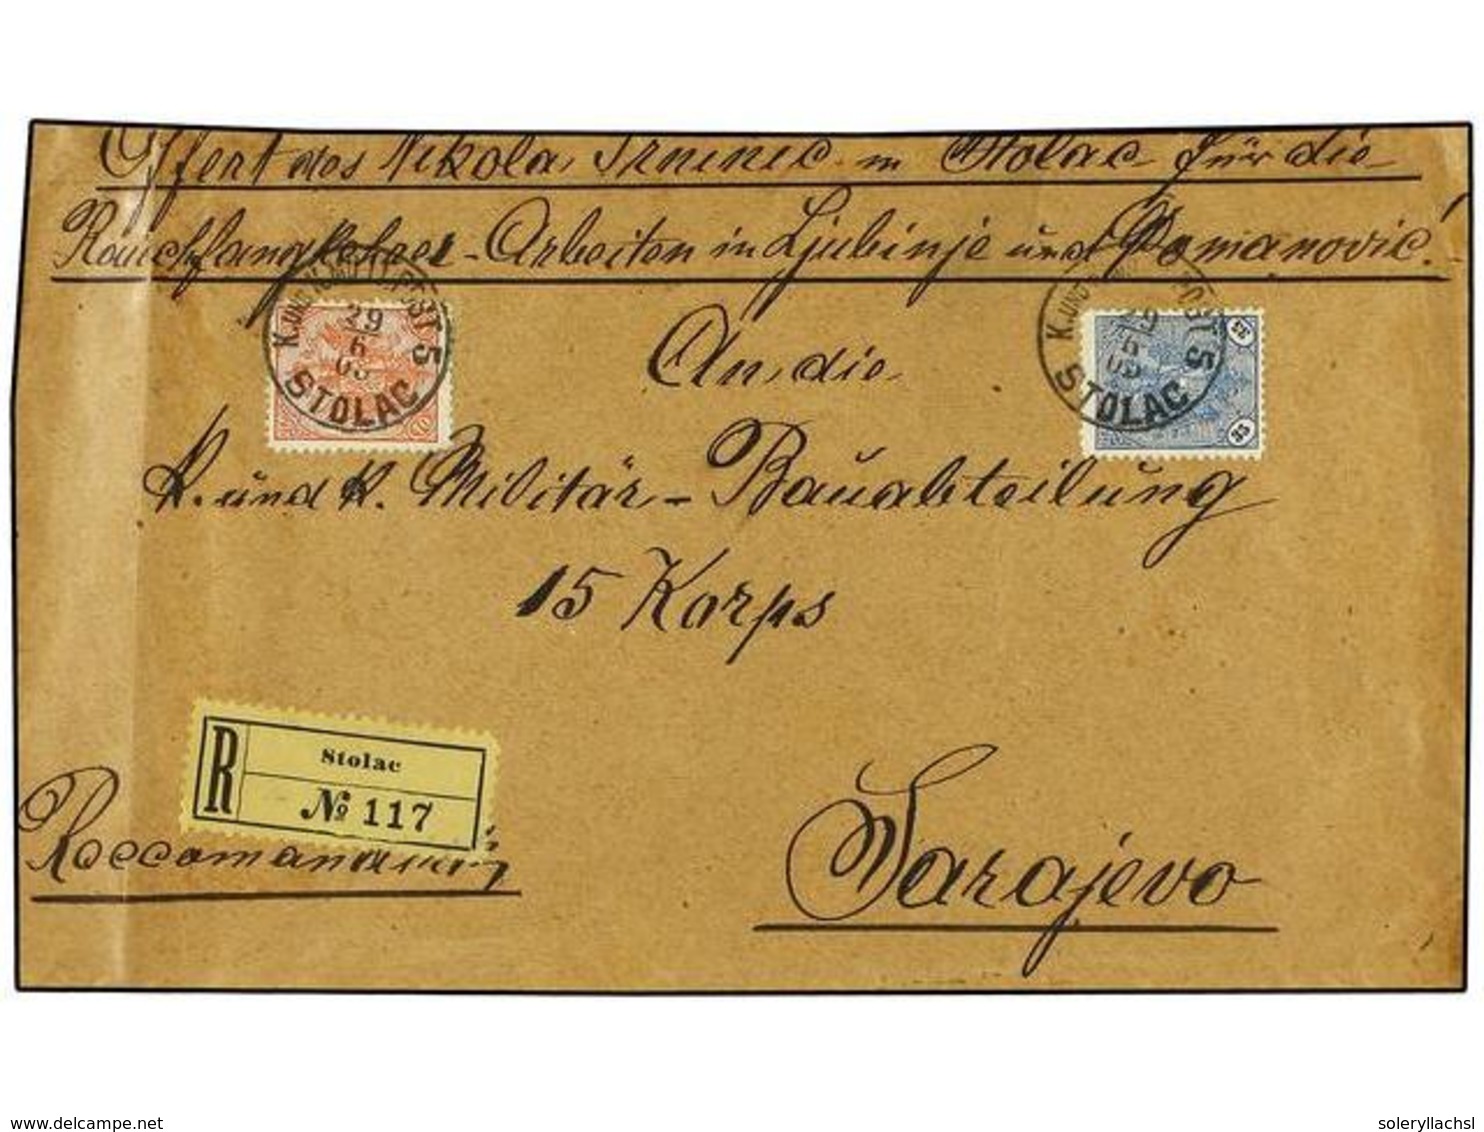 Offert des Nikola Trninic in Stolac für die
Rauchfangkehrer-Arbeiten in Ljubinje und Domanović.
An die
K. und K. Militär-Bauabteilung
15 Korps
Sarajevo
Recommandirt
R
Stolac
№ 117
K. UND K. MILIT. POST 5
29
6
STOLAC
10
K. UND K. POST 5
29
6
STOLAC
35
35
www.delcampe.net
soleryllachsl